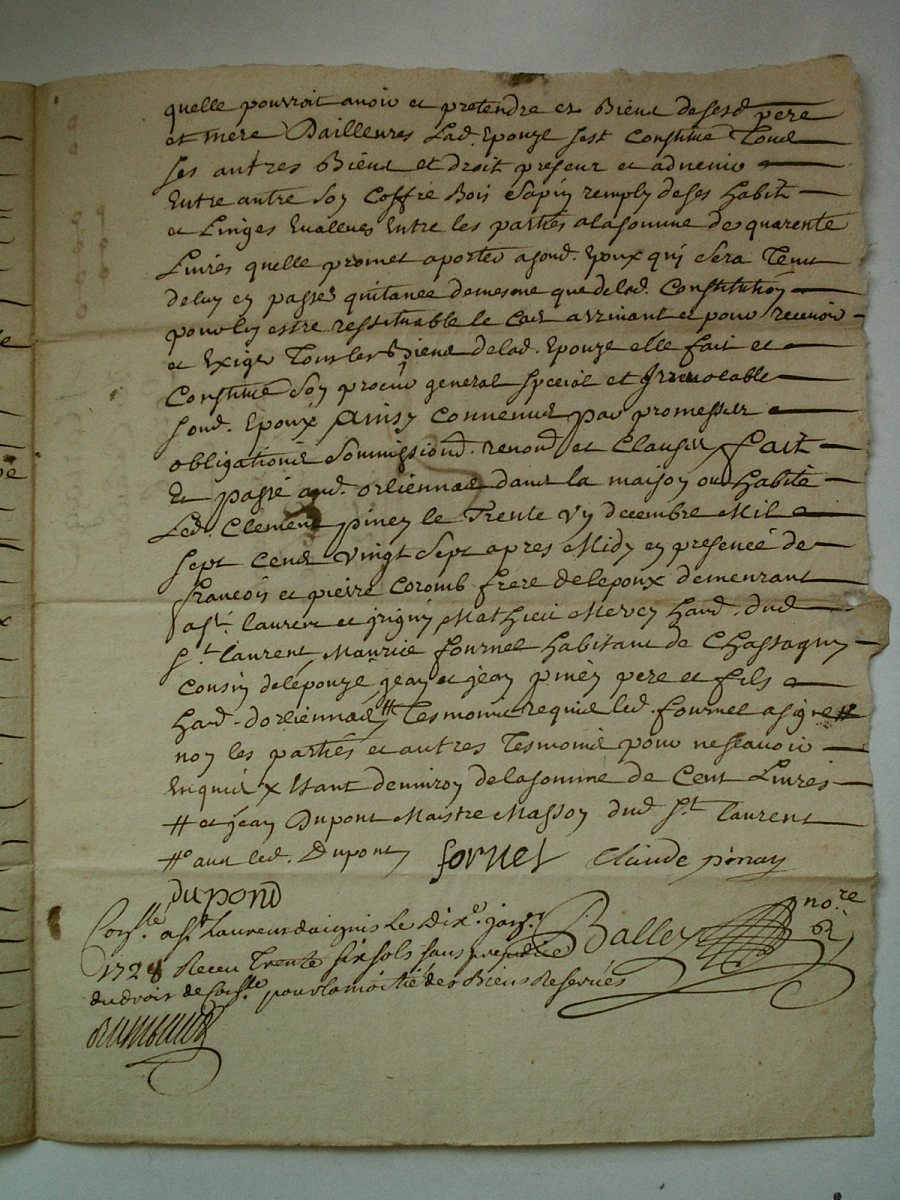 quelle pourroit avoir et pretendre es Biens desesd. pere
et mere Dailleures Lad. Epouze sest Constitué Tous
ses autres Biens et droit present et advenir
Entre autre son Coffre Bois Sapin remply de ses habit
et Linges Evallués Entre les parties a la somme de quarente
Livres quelle promet aporter a sond. Epoux qui sera Tenu
de luy en passer quitance de mesme que de lad. Constitution
pour luy estre restituable le Cas arrivant et pour recevoir
et Exiger Tous les Biens de lad. Epouze elle fait et
Constitue son procur general special et Irrevocable
sond. Epoux Ainsy convenus par promesses
obligations soumissions. renond. et Clauses fait
Et passé aud. orliennas dans la maison ou habite
Led. Clement piney le Trente un decembre Mil
sept cens vingt sept apres Midy en presence de
francois et pierre coromb frere de lepoux demeurant
a st. laurent et grigny Mathieu Mercy hand. dud
st. laurent Maurice fournel habitant de Chassagny
Cousin de lépouze jean et jean piney pere et fils
hand. dorliennas # Tesmoins requis led. fournel a signé #
non les parties et autres Tesmoins pour ne scavoir
Enquis x Estant deniron de la somme de Cent Livres
# et jean Dupont Maistre Masson dud st. laurent
# avec led. Dupont fornel claude pinay
dupond
Conlle. a st Laurens daignis Le Dixe. janr.
Balley nore.
1728 Receu Trente six sols sans prejudice
du droit de Conlle pour la moitié des Biens Reservés